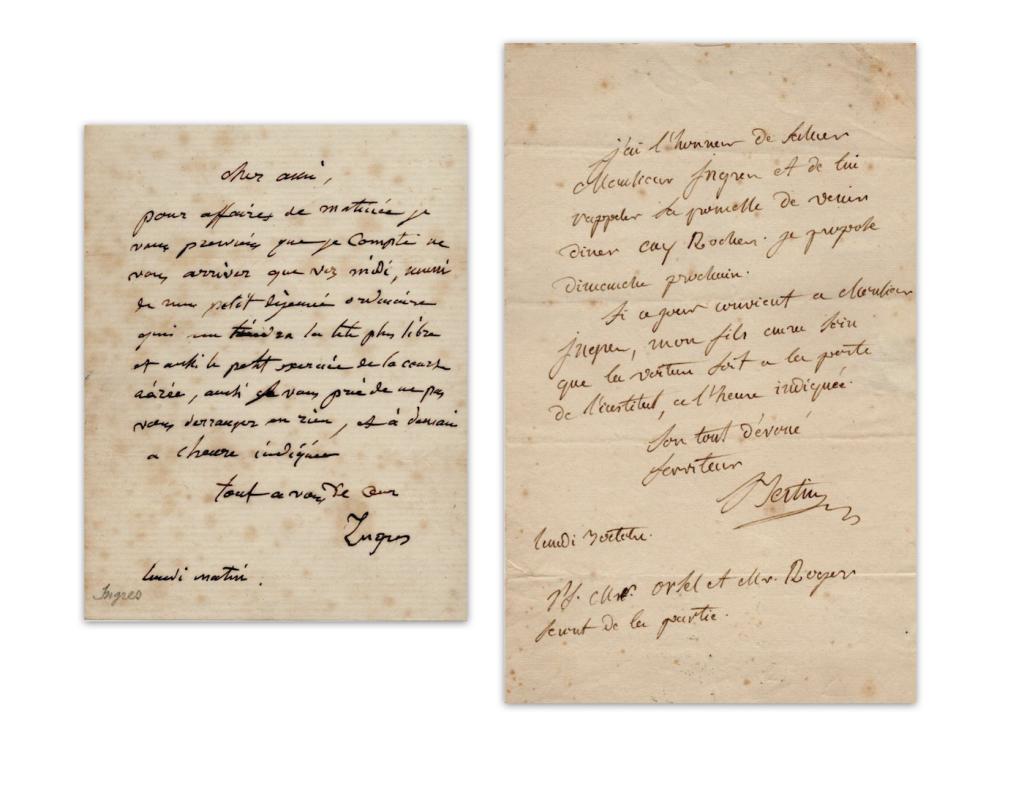 cher ami,
pour affaires de matinée je
vous previens que je Compte ne
vous arriver que vez midi, muni
de mon petit déjeuné ordinaire
qui me tiendra la tête plus libre
et aussi le petit exercice de la course
aérée, aussi je vous prie de ne pas
vous derranger en rien, et à demain
a l'heure indiquée
tout a vous de cœur
Ingres
lundi matin.
Ingres
j'ai l'honneur de saluer
Monsieur Ingres et de lui
rappeler sa promesse de venir
diner aux Roches. je propose
dimanche prochain.
Si ce jour convient a Monsieur
Ingres, mon fils aura soin
que la voiture soit a la porte
de l'institut, a l'heure indiquée.
Son tout dévoué
serviteur
Bertin
lundi 3 octobre.
PS. Mr. Orsel et Mr. Roger
seront de la partie.